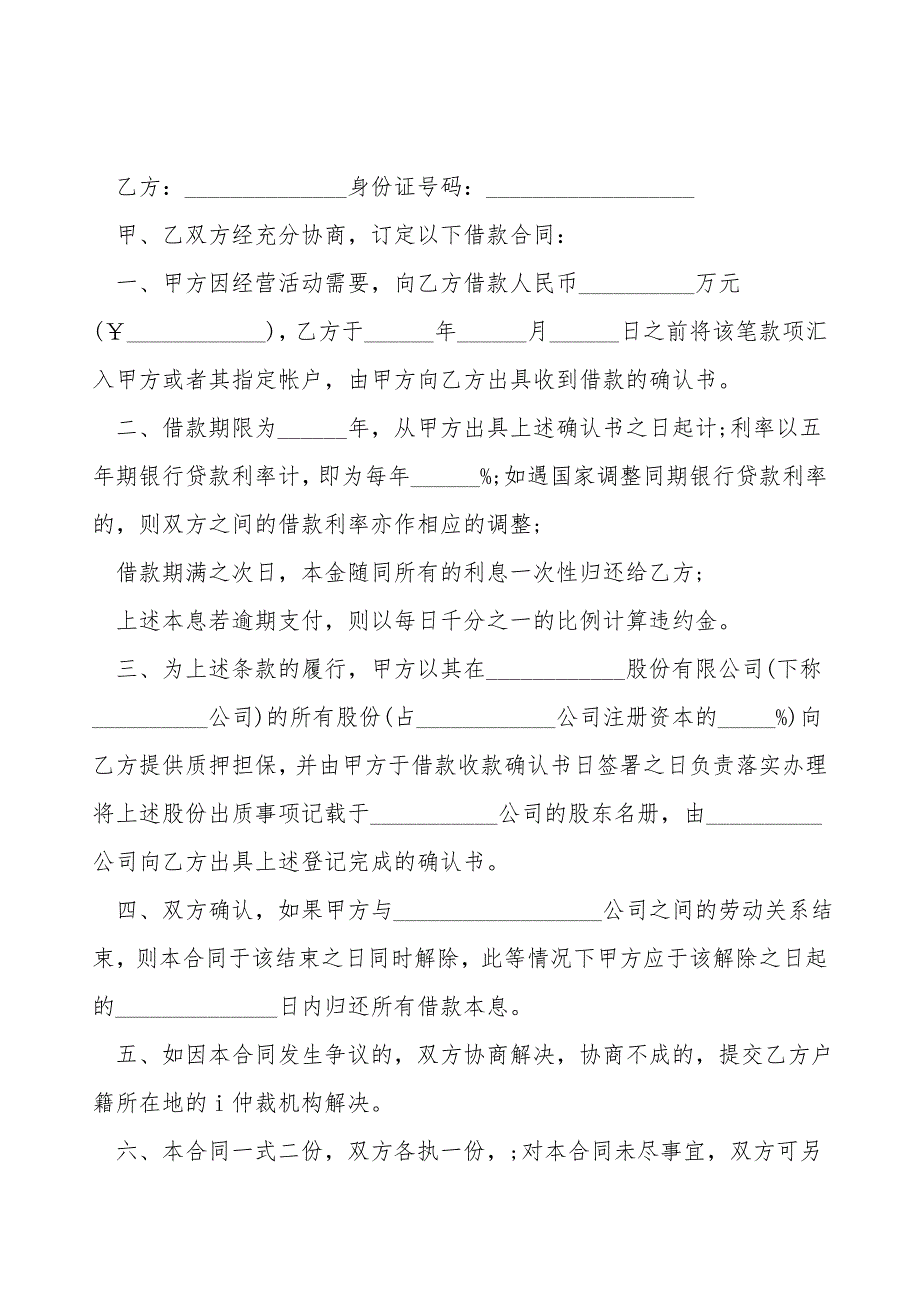 乙方：______________身份证号码：__________________
甲、乙双方经充分协商，订定以下借款合同：
一、甲方因经营活动需要，向乙方借款人民币__________万元
(￥____________)，乙方于______年______月______日之前将该笔款项汇
入甲方或者其指定帐户，由甲方向乙方出具收到借款的确认书。
二、借款期限为______年，从甲方出具上述确认书之日起计;利率以五
年期银行贷款利率计，即为每年______%;如遇国家调整同期银行贷款利率
的，则双方之间的借款利率亦作相应的调整;
借款期满之次日，本金随同所有的利息一次性归还给乙方;
上述本息若逾期支付，则以每日千分之一的比例计算违约金。
三、为上述条款的履行，甲方以其在____________股份有限公司(下称
__________公司)的所有股份(占____________公司注册资本的_____%)向
乙方提供质押担保，并由甲方于借款收款确认书日签署之日负责落实办理
将上述股份出质事项记载于___________公司的股东名册，由__________
公司向乙方出具上述登记完成的确认书。
四、双方确认，如果甲方与__________________公司之间的劳动关系结
束，则本合同于该结束之日同时解除，此等情况下甲方应于该解除之日起
的______________日内归还所有借款本息。
五、如因本合同发生争议的，双方协商解决，协商不成的，提交乙方户
籍所在地的i仲裁机构解决。
六、本合同一式二份，双方各执一份，;对本合同未尽事宜，双方可另